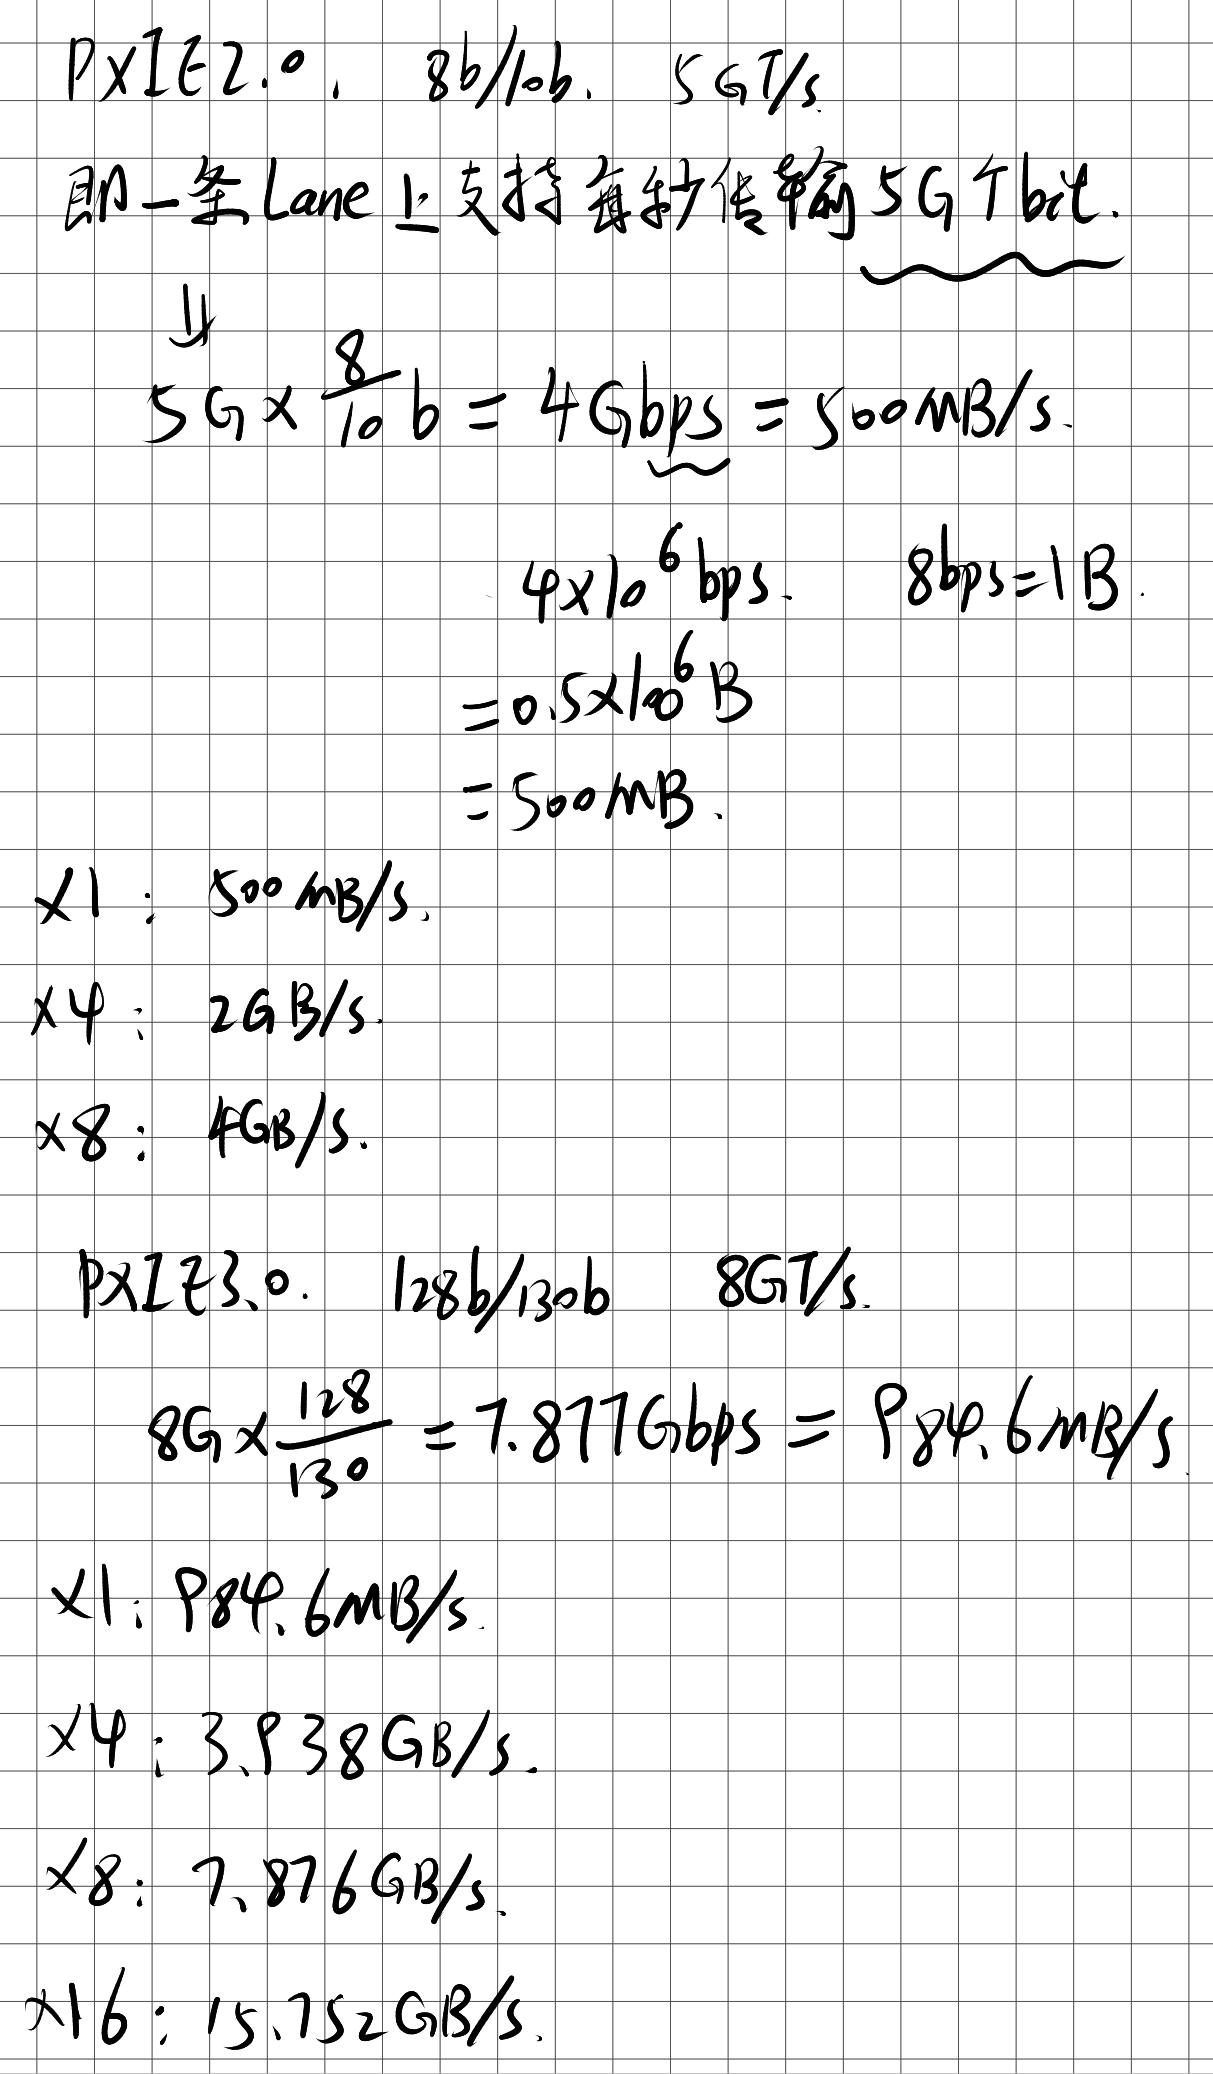 PXIE2.0. 8b/10b. 5GT/s.
即一条Lane上支持每秒传输5GTbit.
⇓
5G×8/10 b=4Gbps=500MB/s.
4×10^6 bps. 8bps=1B.
=0.5×10^6 B
=500MB.
X1: 500MB/s.
X4: 2GB/s.
X8: 4GB/s.
PXIE3.0. 128b/130b 8GT/s.
8G×128/130=7.877Gbps=984.6MB/s
X1: 984.6MB/s.
X4: 3.938GB/s.
X8: 7.876GB/s.
X16: 15.752GB/s.